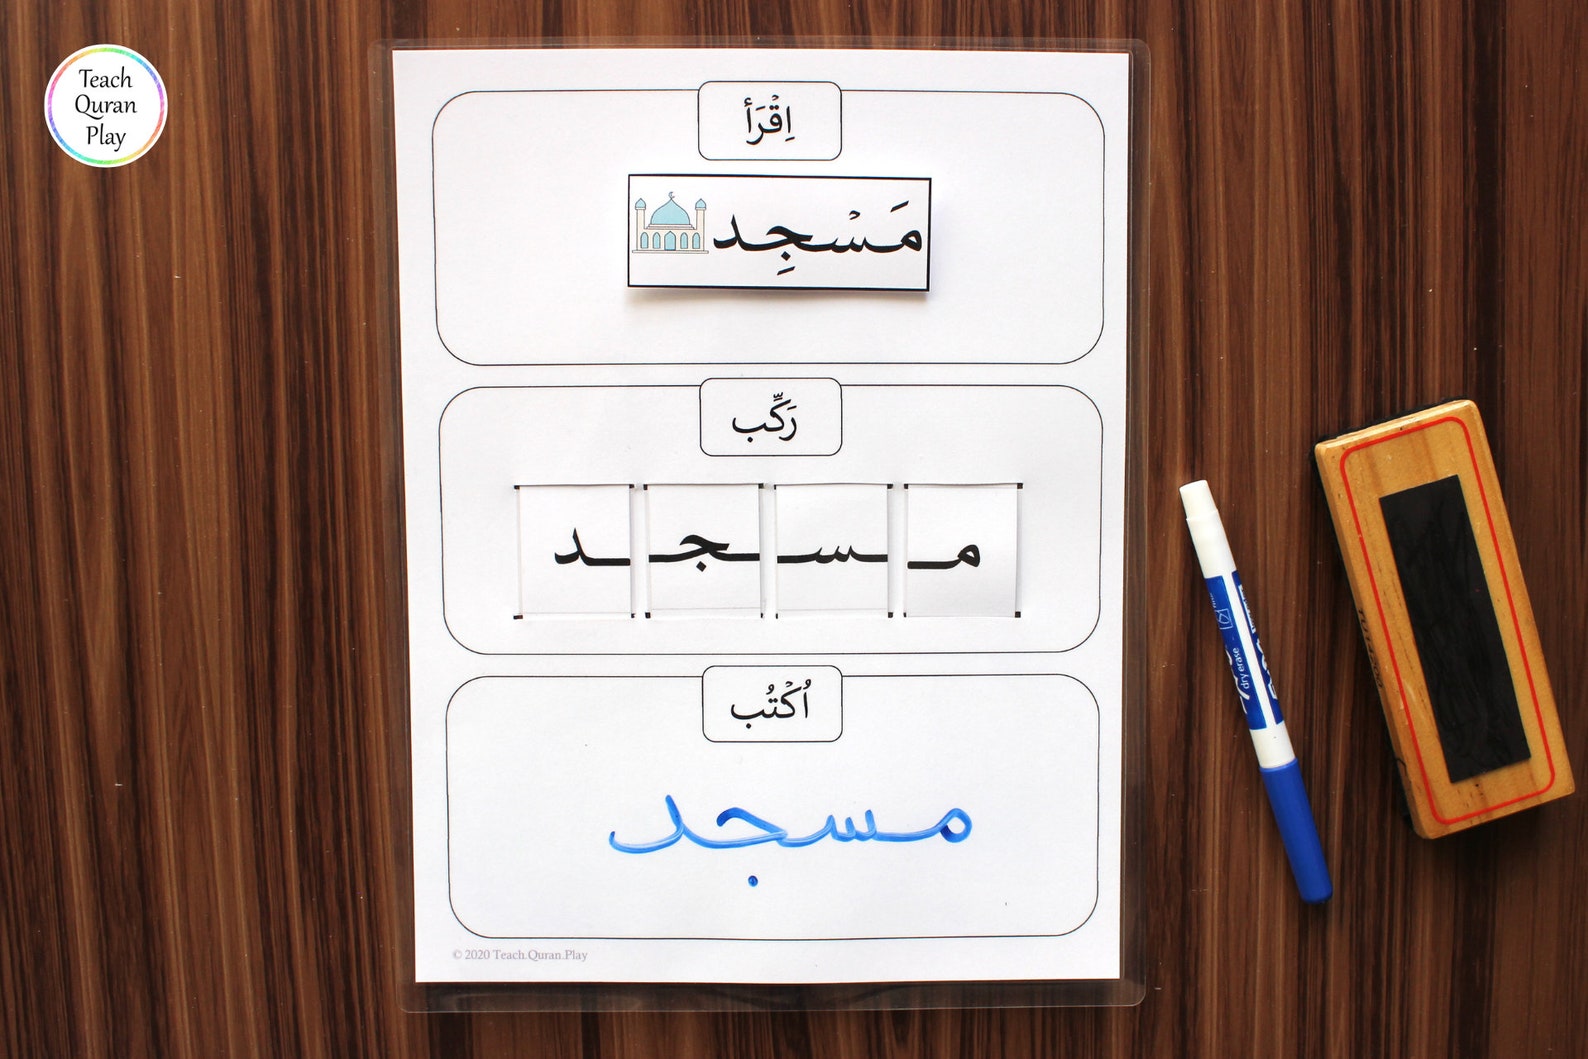 Teach
Quran
Play
اِقْرَأ
مَسْجِد
رَكِّب
مـ ـسـ ـجـ ـد
اُكْتُب
مسجد
© 2020 Teach.Quran.Play
dry erase